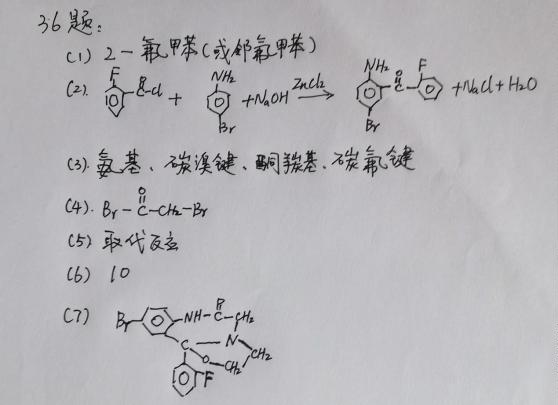 36题:
(1) 2-氟甲苯(或邻氟甲苯)
(2). F O C-Cl + NH2 Br +NaOH ZnCl2 → NH2 O C F Br +NaCl+H2O
(3). 氨基、碳溴键、酮羰基、碳氟键
(4). Br-C-CH2-Br O
(5) 取代反应
(6) 10
(7) Br NH-C-CH2 O C N O CH2 CH2 F